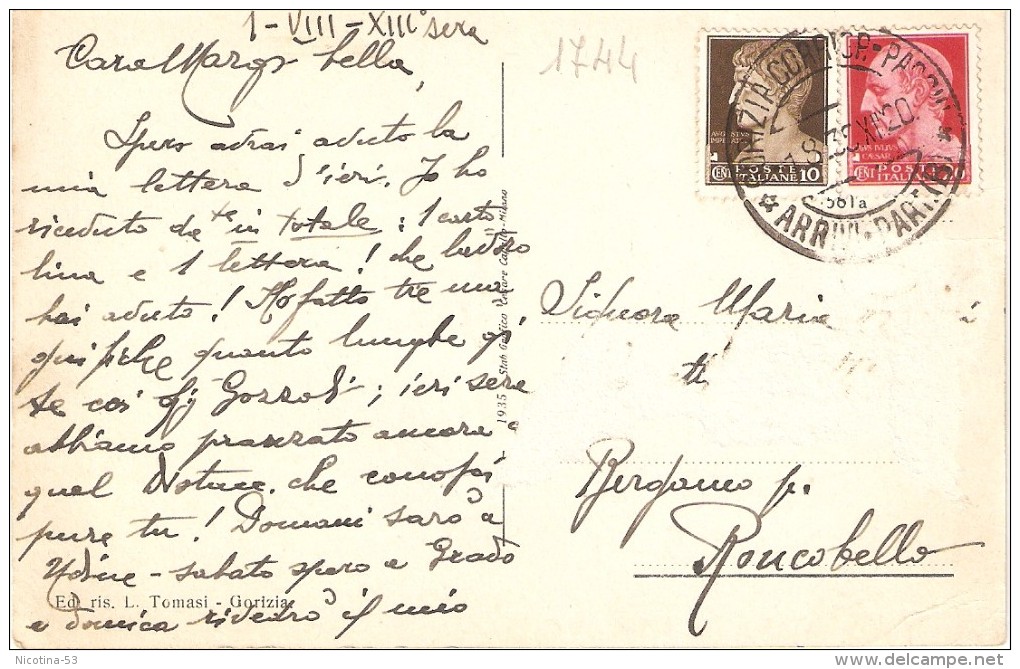 1-VIII-XIII° sera
1744
Cara Margi bella,
Spero avrai avuto la
mia lettera d'ieri. Io ho
ricevuto da te in totale: 1 carto
lina e 1 lettera! che lavoro
hai avuto! Ho fatto tre
quanto lunghe
te coi Gozzoli; ieri sera
abbiamo pranzato ancora a
quel che conosci
pure tu! Domani sarò a
Udine - sabato spero a Grado
e domenica rivedrò il mio
Ed. ris. L. Tomasi - Gorizia
1935 - Stab Grafico Cesare Capello - Milano
AUGUSTUS
IMPERATOR
POSTE
CENT ITALIANE 10
CAESAR
POSTE
CENT ITALIANE 20
GORIZIA CORRISP. PACCHI
1.8.35 XIII 20
561a
* ARRIVI-PARTENZE *
Signora Maria
ti
Bergamo p.
Roncobello
Nicotina-53
delcampe.net